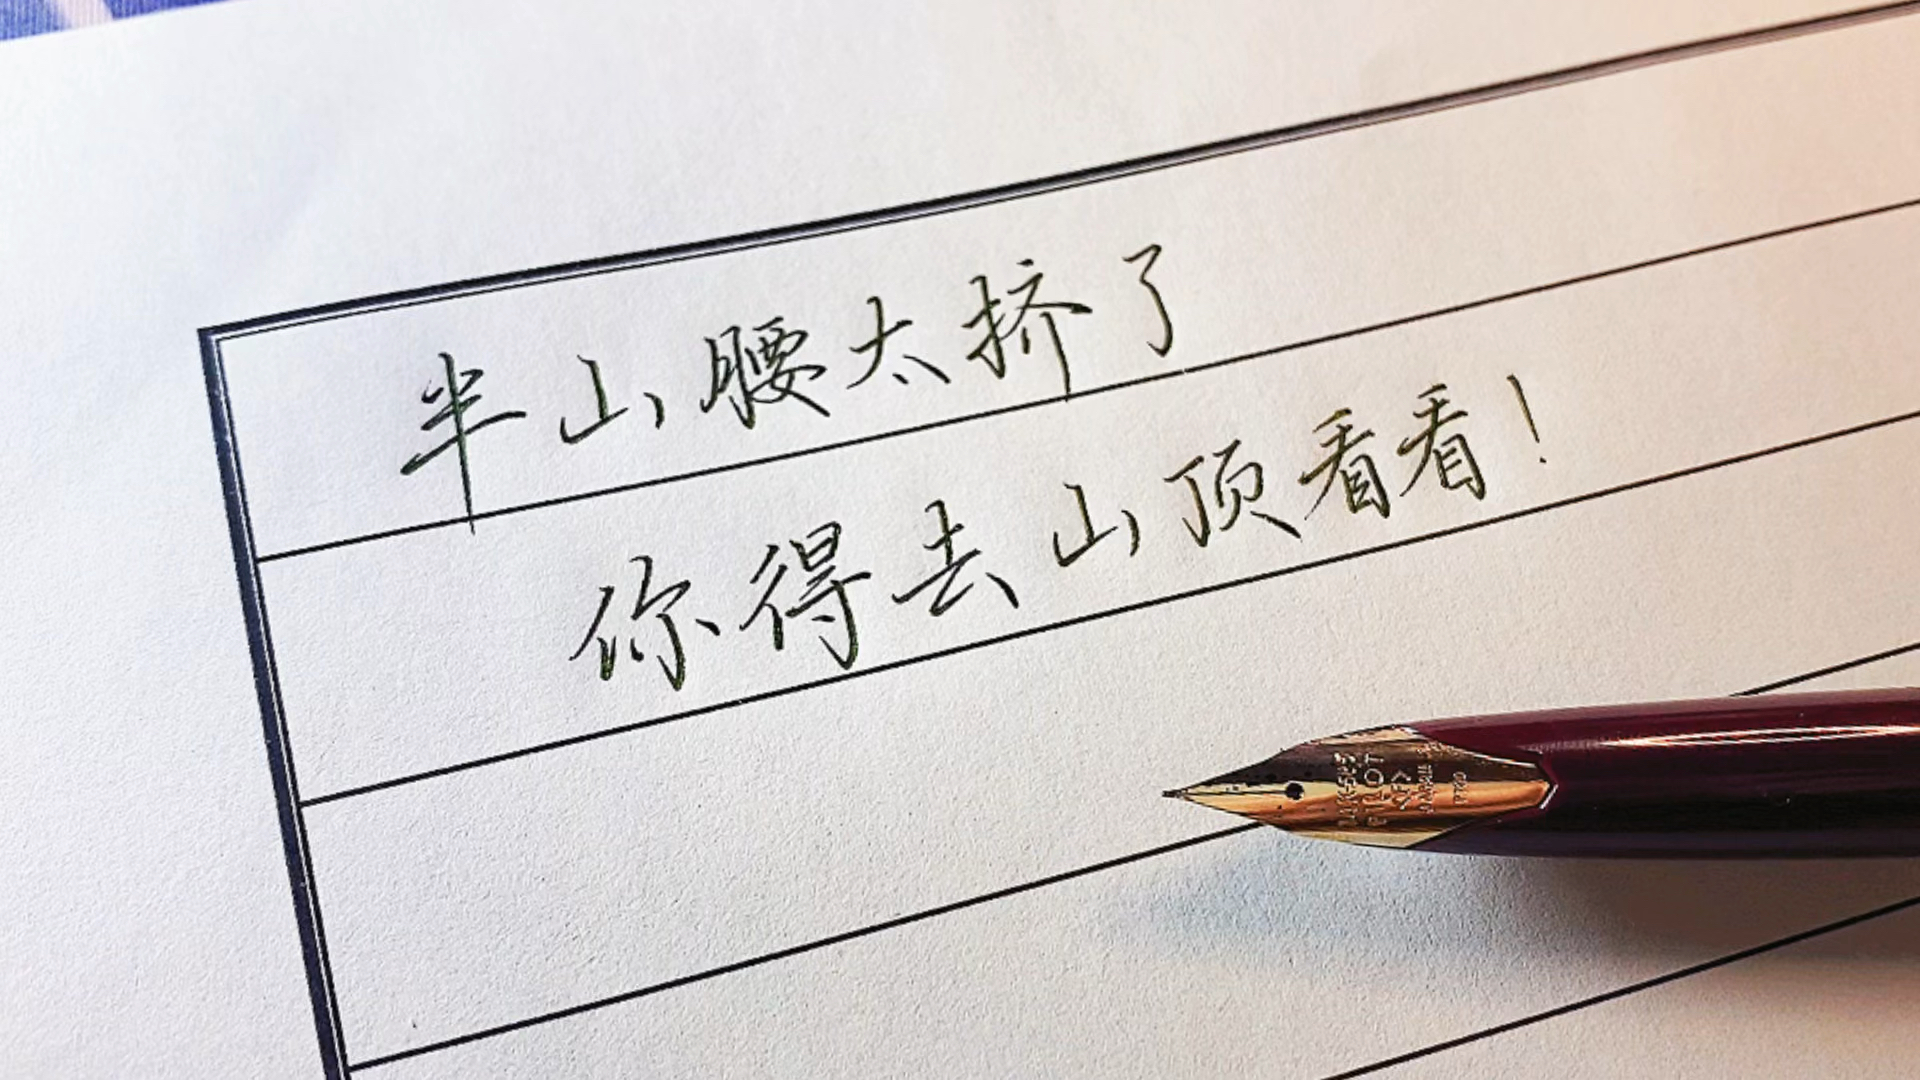 半山腰太挤了
你得去山顶看看!
PILOT